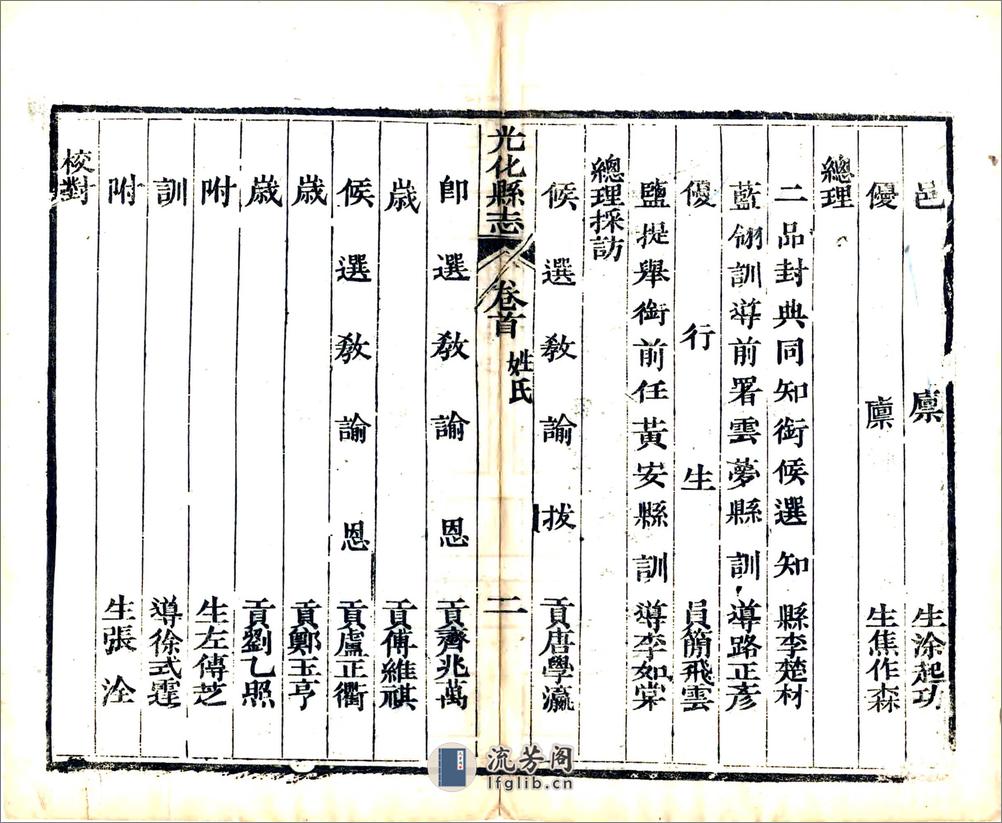 邑廪生涂起功
優廪生焦作森
總理
二品封典同知銜候選知縣李楚材
藍翎訓導前署雲夢縣訓導路正彥
優行生員簡飛雲
鹽提舉銜前任黃安縣訓導李如棠
總理採訪
候選教諭拔貢唐學瀛
光化縣志 卷首 姓氏 二
卽選教諭恩貢齊兆萬
歲貢傅維祺
候選教諭恩貢盧正衢
歲貢鄭玉亭
歲貢劉乙照
附生左傳芝
訓導徐式霆
附生張洤
校對
流芳阁
lfglib.cn